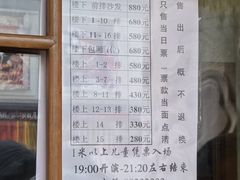 楼下 前排沙发 880元
楼下 1-10 排 680元
楼下 11-16 排 580元
楼下包厢 680元
楼上 1-2 排 580元
楼上 3-7 排 480元
楼上 8-11 排 380元
楼上 12-13 排 380元
楼上 14 排 330元
楼上 15 排 280元
只售当日票
一票款当面点清
售出后概不退换
1米以上儿童凭票入场
19:00开演-21:20左右结束